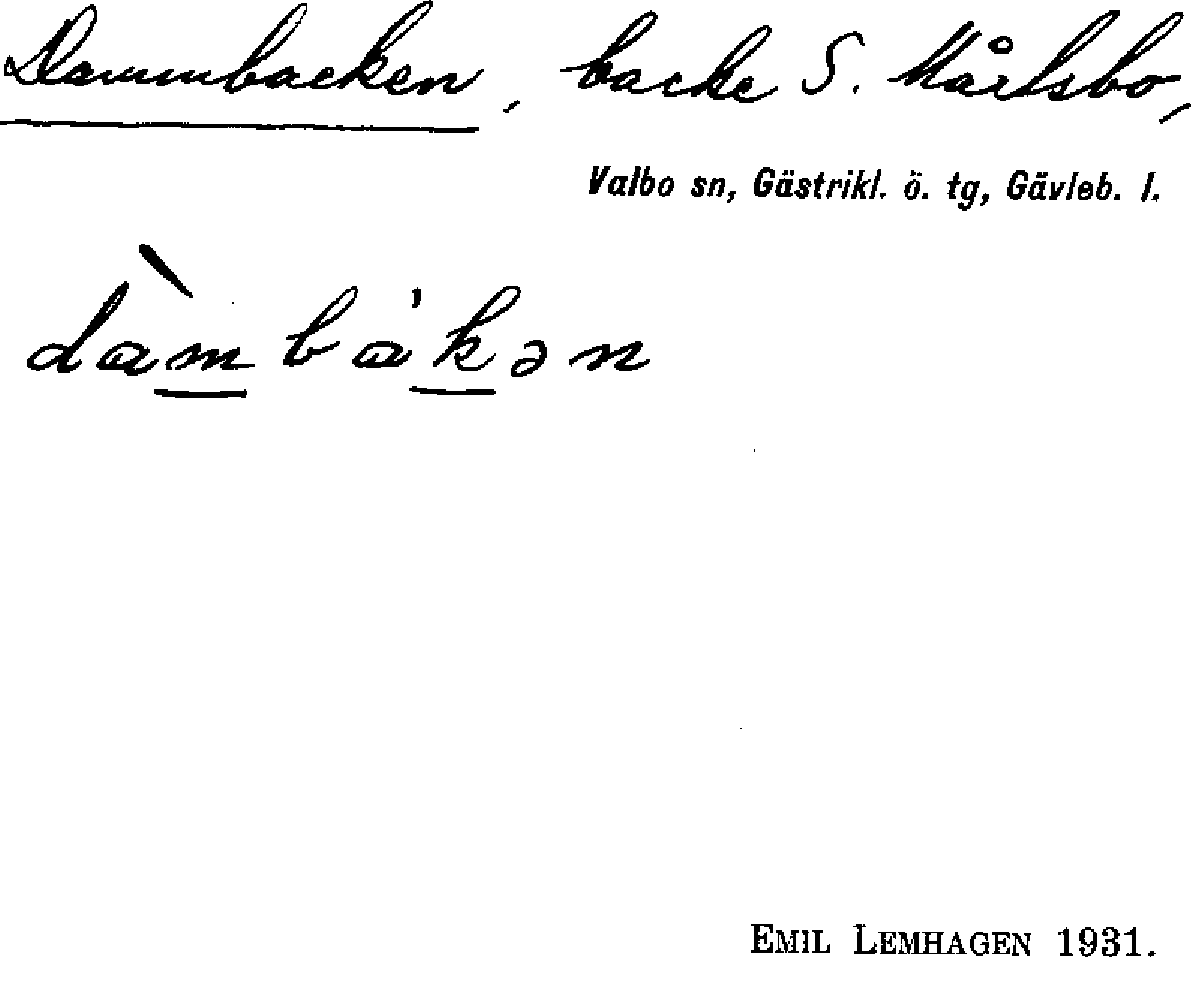 Dammbacken, backe S. Mårtsbo,
Valbo sn, Gästrikl. ö. tg, Gävleb. l.
dàm bákən
EMIL LEMHAGEN 1931.